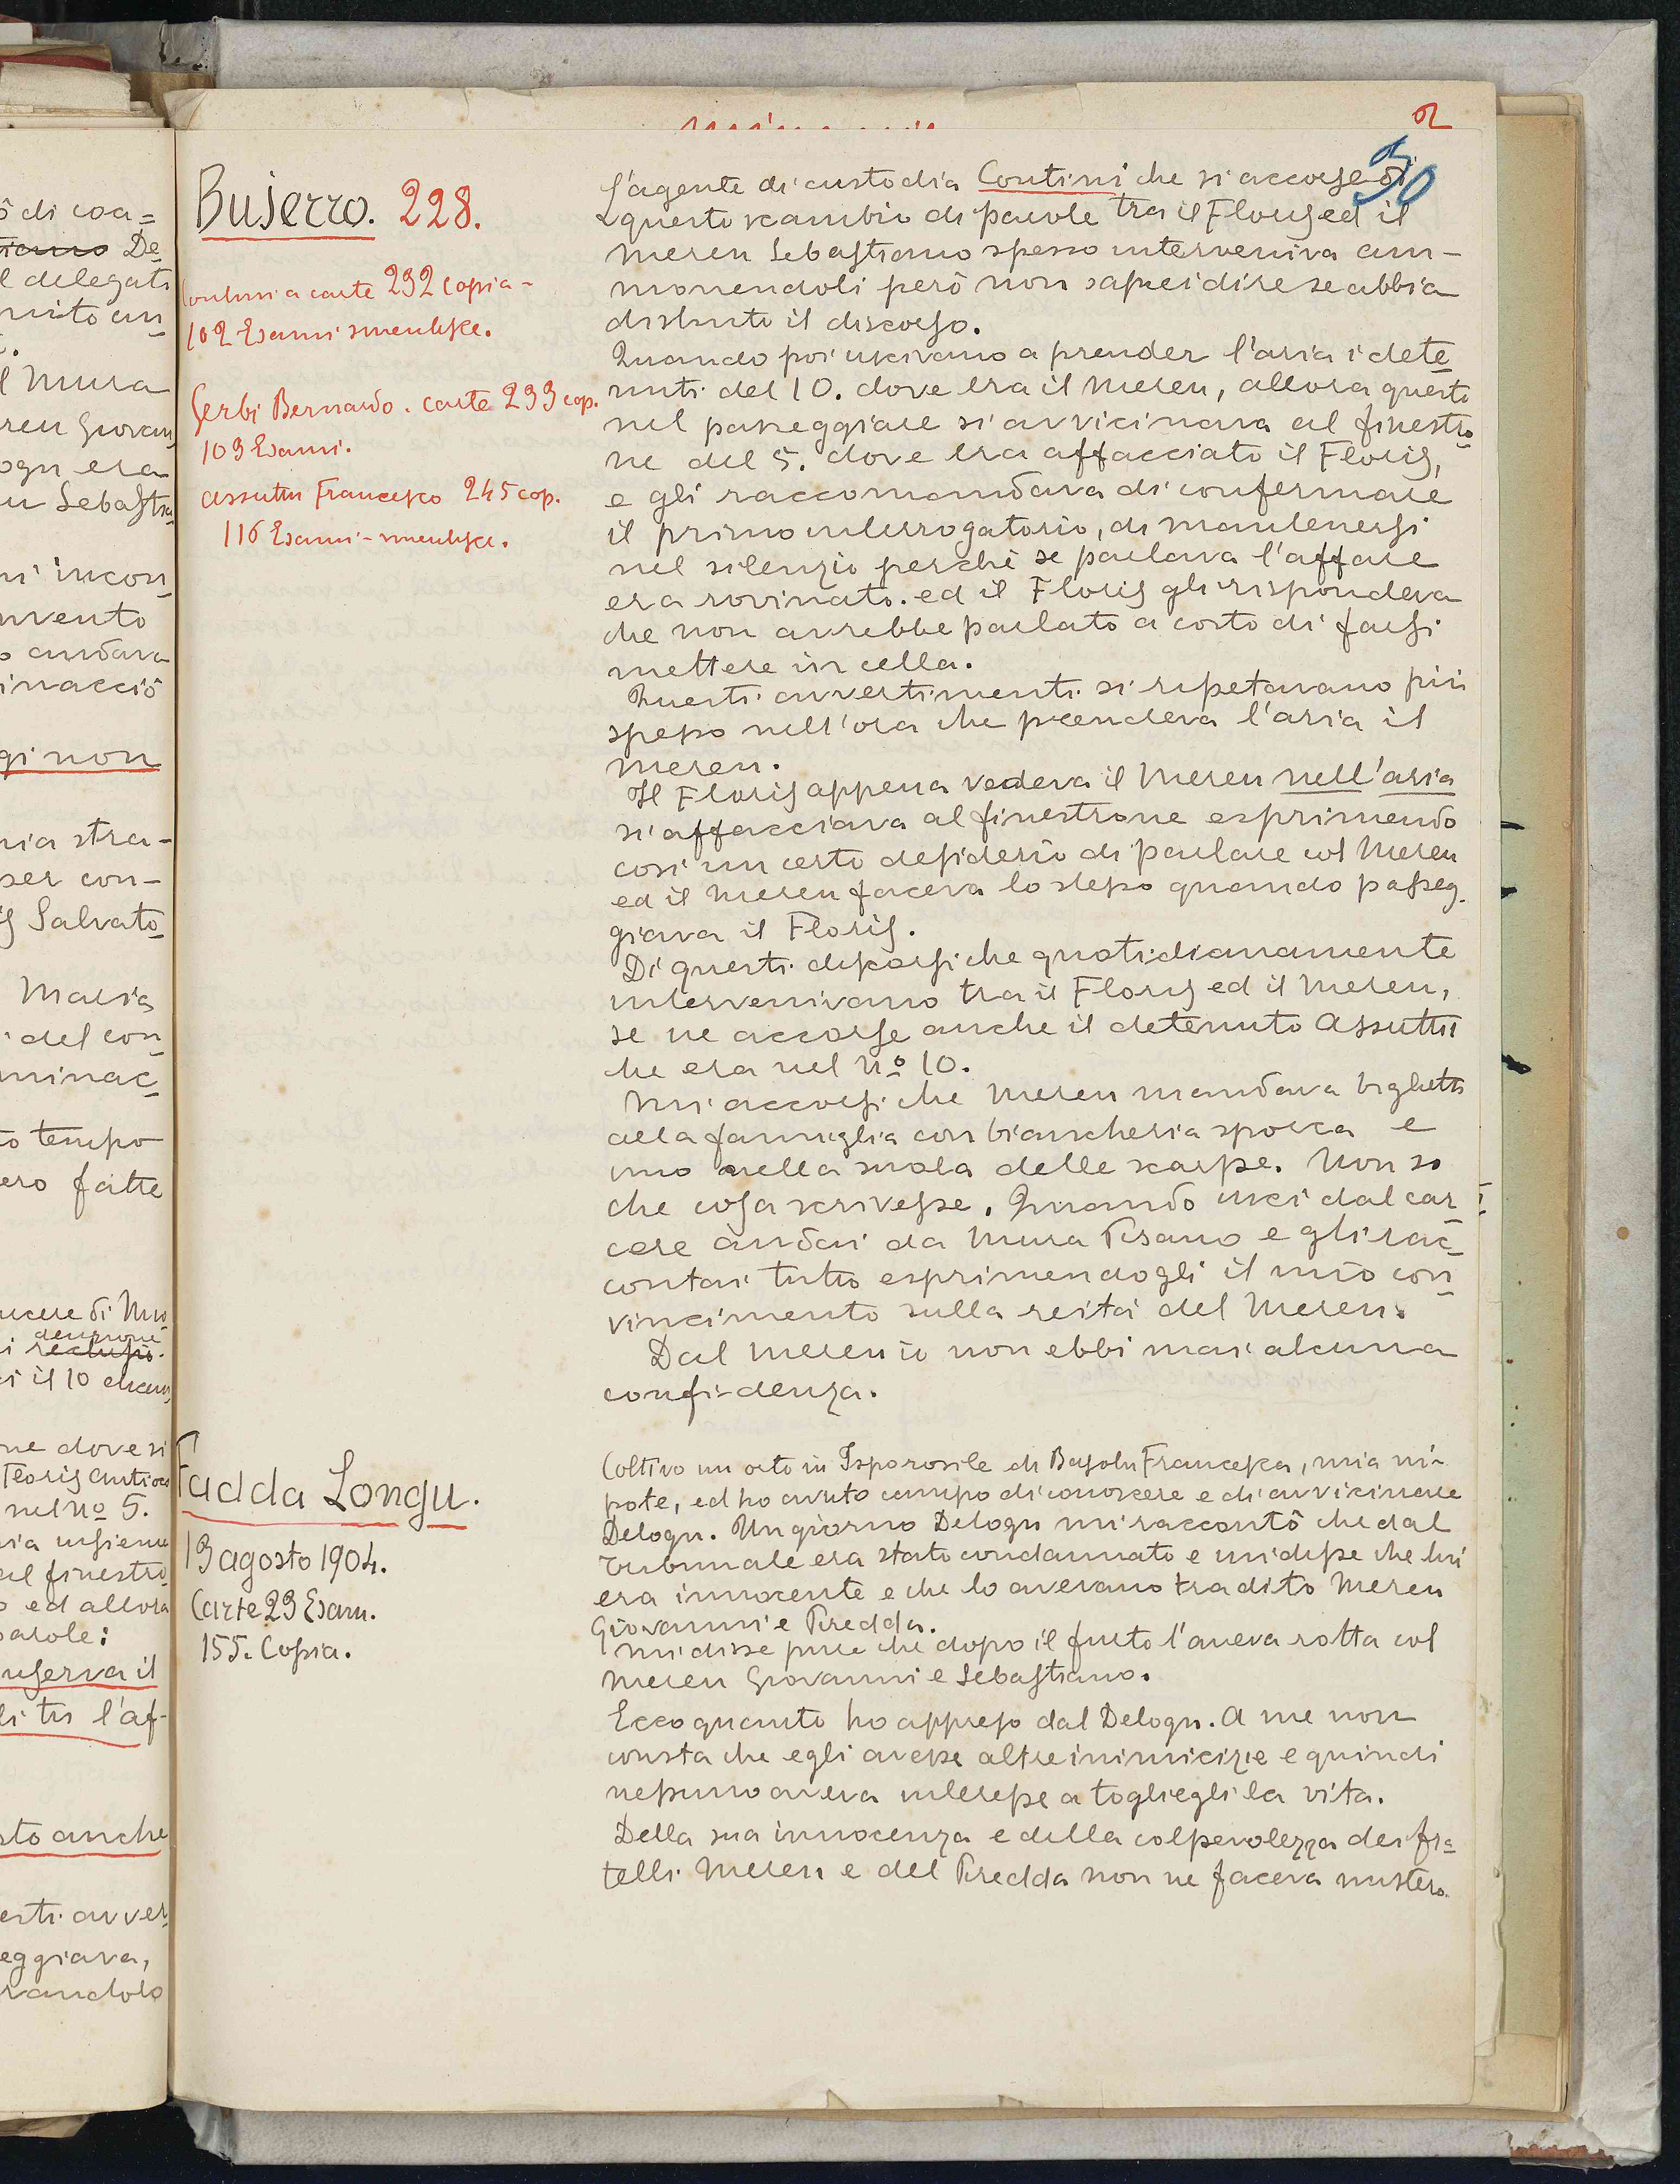 2
30
Buserro. 228.
Contini a carte 232 copia -
102 Esami smentisce.
Gerbi Bernardo. carte 233 cop.
103 Esami.
Assuttu Francesco 245 cop.
116 Esami - smentisce.
L'agente di custodia Contini che si accorse di
questo scambio di parole tra il Floris ed il
Mereu Sebastiano spesso interveniva am-
monendoli però non saprei dire se abbia
distinto il discorso.
Quando poi uscivano a prender l'aria i dete-
nuti del 10. dove era il Mereu, allora questo
nel passeggiare si avvicinava al finestro-
ne del 5. dove era affacciato il Floris,
e gli raccomandava di confermare
il primo interrogatorio, di mantenersi
nel silenzio perchè se parlava l'affare
era rovinato. ed il Floris gli rispondeva
che non avrebbe parlato a costo di farsi
mettere in cella.
Questi avvertimenti si ripetavano più
spesso nell'ora che prendeva l'aria il
Mereu.
Il Floris appena vedeva il Mereu nell'aria
si affacciava al finestrone esprimendo
così un certo desiderio di parlare col Mereu
ed il Mereu faceva lo stesso quando passeg-
giava il Floris.
Di questi discorsi che quotidianamente
intervenivano tra il Floris ed il Mereu,
se ne accorse anche il detenuto Assuttu
che era nel Nº 10.
Mi accorsi che Mereu mandava biglietti
alla famiglia con biancheria sporca e
uno nella suola delle scarpe. Non so
che cosa scrivesse. Quando uscì dal car-
cere andai da Mura Pisano e gli rac-
contai tutto esprimendogli il mio con-
vincimento sulla reità del Mereu.
Dal Mereu io non ebbi mai alcuna
confidenza.
Fadda Longu.
13 agosto 1904.
Carte 23 Esam.
155. Copia.
Coltivo un orto in Isporosile di Basolu Francesca, mia ni-
pote, ed ho avuto campo di conoscere e di avvicinare
Delogu. Un giorno Delogu mi raccontò che dal
Tribunale era stato condannato e mi disse che lui
era innocente e che lo avevano tradito Mereu
Giovanni e Piredda.
Mi disse pure che dopo il furto l'aveva rotta col
Mereu Giovanni e Sebastiano.
Ecco quanto ho appreso dal Delogu. A me non
consta che egli avesse altre inimicizie e quindi
nessuno aveva interesse a togliegli la vita.
Della sua innocenza e della colpevolezza dei fra-
telli Mereu e del Piredda non ne faceva mistero.